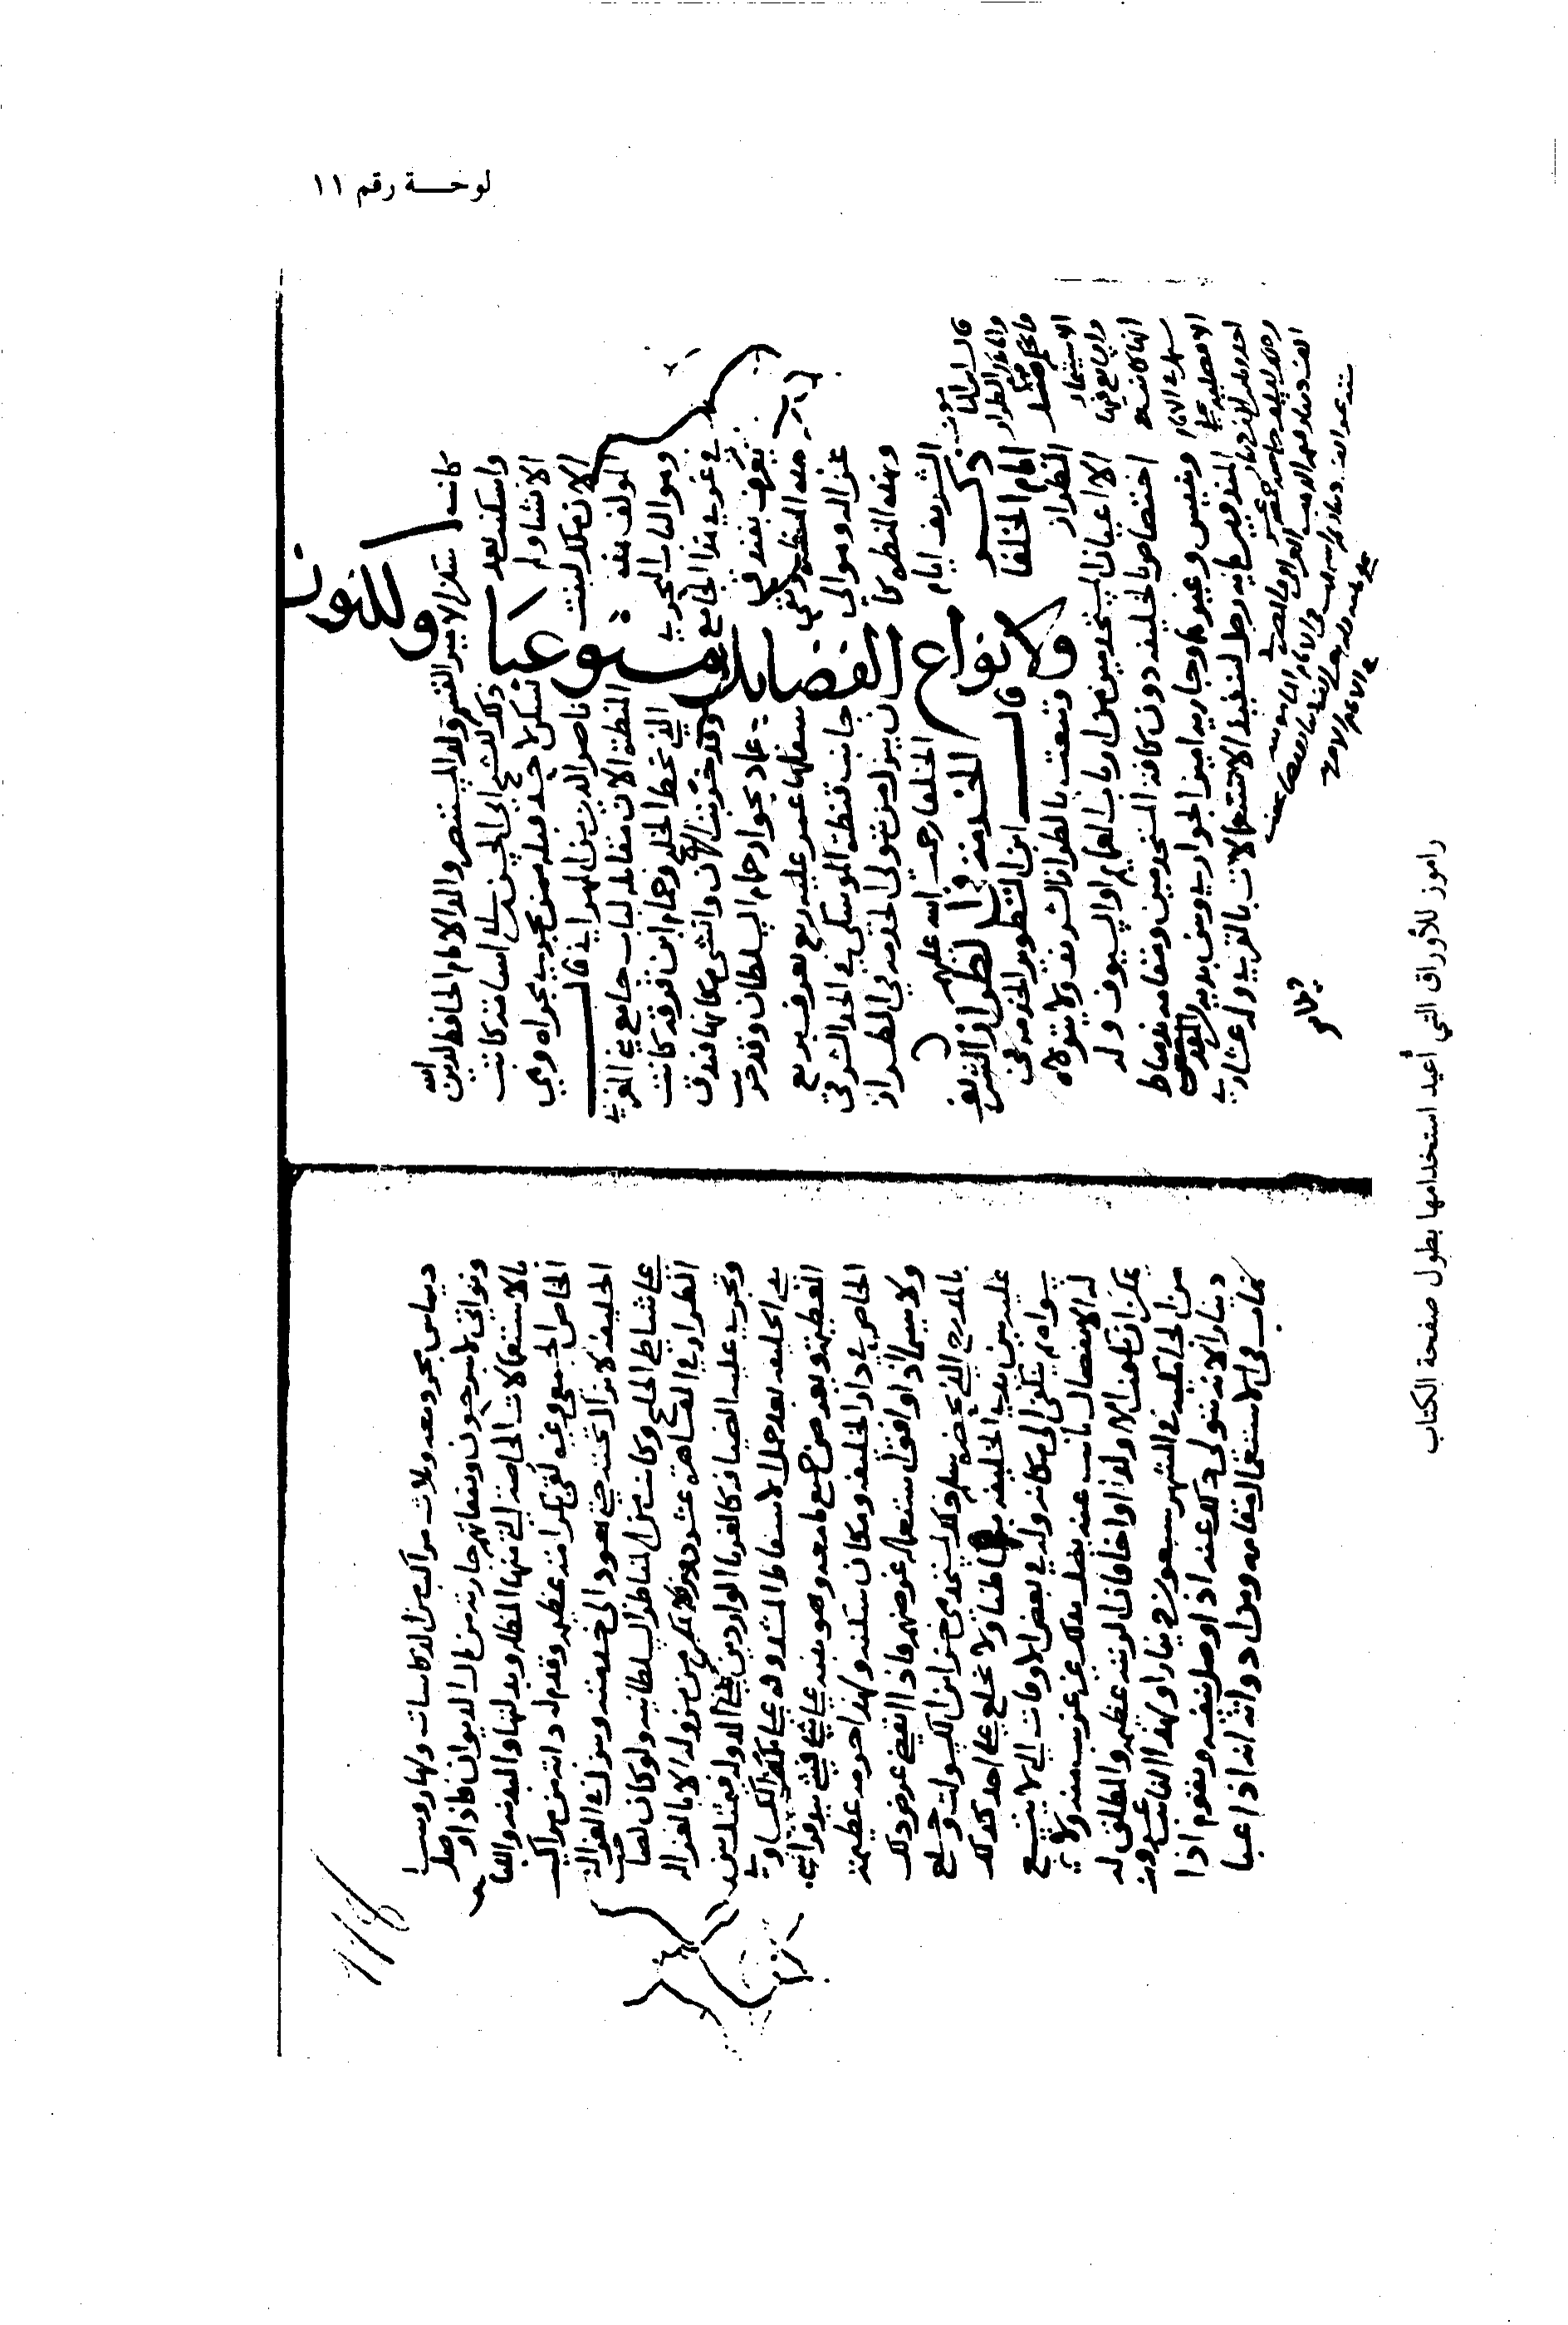 لوحة رقم ١١
كانت سكن الامير ابي القسم ولد المستنصر والد الامام الحافظ لدين الله
واسكنها بعد ذلك الشيخ ابي الحسن علي اسامة كاتب
الانشا ولم تسكن لاحد قبله ممن يجري مجراه وهي
الان ملك لبنت ناصر الدين بن المهراني قال
المولف هذه المنظرة الان مقابلة لباب جامع بن المغربي
وهو الباب البحري الذي بخط الخليج وحمام ابن قرقة كانت
في غربي هذا الجامع وقد خربت الان وانشي مكانها فندق
يعرف بفندق عماد بجوار حمام السلطان وقد خرب
هذه المنظرة وبقي سفلها عمر عليه ربع يعرف بربع
غزاله وهو الى جانب قنطرة الموسكي في الحد الشرقي
وهذه المنظرة كان ينزل من تولى الخدمة في الطراز
الشريف ايام الخلفا رحمة الله عليهم
ذكر الخدمة في الطراز الشريف
ايام الخلفا قال ابن الطوير الخدمة في
الطراز وتنعت بالطراز الشريف ولا يتولاه
الا اعيان المستخدمين من ارباب العمايم او السيوف وله
اختصاص بالخليفة دون كافة المستخدمين ومقامه بدمياط
وتنيس وغيرها وجاريه امير الجواري وبين يديه من
المندوبين مايه رجل لتنفيذ الاستعمالات بالقرى وله عشاري
ولانواع الفضايل مستوعبا
ديماس مجرد معه وثلاث مراكب من الدكاسات ولها روسا
ونواتي لا يبرحون ونفقاتهم جارية من مال الديوان فاذا وصل
بالاستعمالات الخاصة التي منها المظلة وبدلتها والبدنة واللباس
الخاص الجمعي وغيره لقي بكرامة عظيمة وقدم له دابة من مراكيب
الخليفة لا تزال تحته حتى يعود الى خدمته وينزل في الغزالة
على شاطي الخليج وكانت من المناظر السلطانية ولو كان لصاحب
الطراز في القاهرة عشرة دور لا يمكن من نزوله الا بالغزالة
وتجري عليه الضيافة كالغربا الواردين على الدولة فيتمثل بين
يدي الخليفة بعد حمل الاسفاط المشدودة على تلك الكساوي
العظيمة ويعرض جميع ما معه وهو ينبه على شي فشي بيد فراشي
الخاص في دار الخليفة ومكان سكنه ولهذا حرمة عظيمة
ولا سيما اذا وافق استعماله غرضهم فاذا انقضى عرض ذلك
بالمدرج الذي يحضره سلم ذلك لمستخدمي خزاين الكسوات وخلع
عليه بين يدي الخليفة باطنا ولا يخلع على احد كذلك
سواه ثم ينكفي الى مكانه وله في بعض الاوقات التي لا يتسع
له الانفصال نايب عنه يصل بذلك غير غريب منه ولا
يمكن ان يكون الا ولدا او اخا فان الرتبة عظيمة والمطلق له
من الجامكية في الشهر سبعون دينارا ولهذا النايب عشرون
دينارا لانه يتولى ذلك عنه اذا وصل بنفسه ويقوم اذا
غاب في الاستعمال مقامه ومن ادواته انه اذا عبا
راموز للأوراق التي أعيد استخدامها بطول صفحة الكتاب